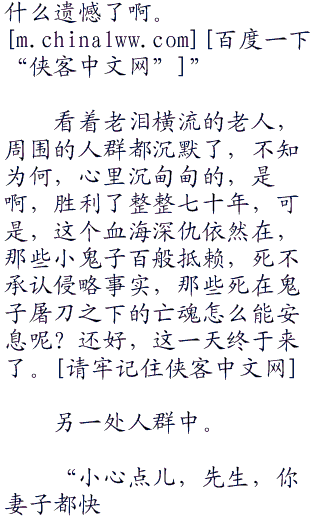 什么遗憾了啊。
[m.china1ww.com][百度一下
“侠客中文网”]”
看着老泪横流的老人，
周围的人群都沉默了，不知
为何，心里沉甸甸的，是
啊，胜利了整整七十年，可
是，这个血海深仇依然在，
那些小鬼子百般抵赖，死不
承认侵略事实，那些死在鬼
子屠刀之下的亡魂怎么能安
息呢？还好，这一天终于来
了。[请牢记住侠客中文网]
另一处人群中。
“小心点儿，先生，你
妻子都快